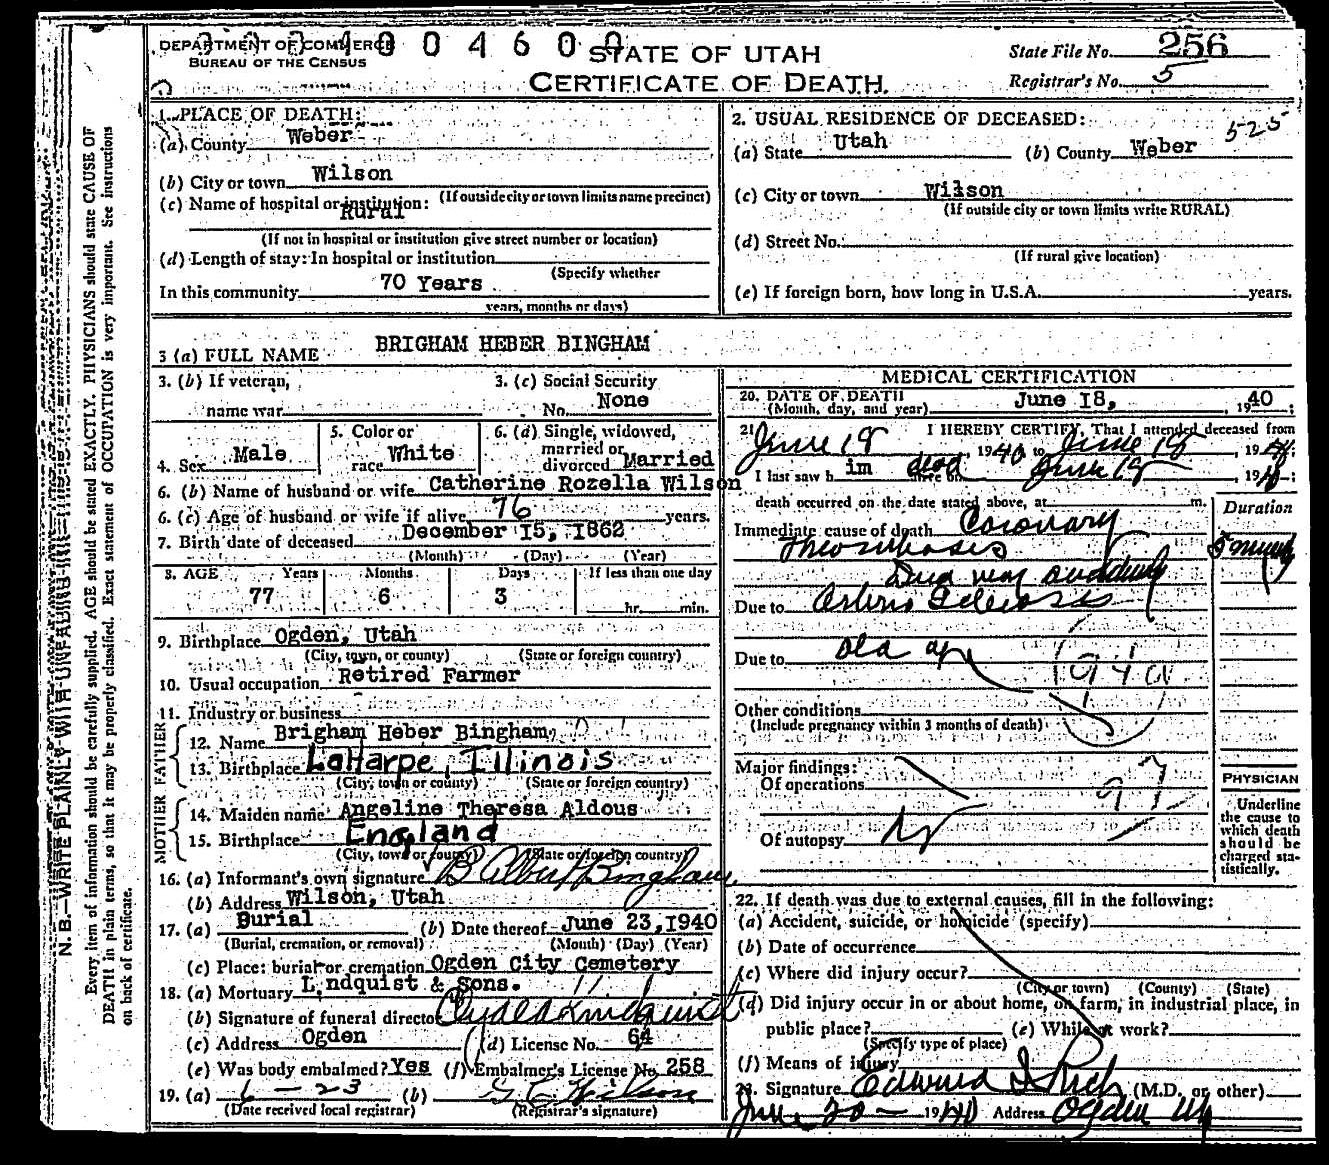 DEPARTMENT OF COMMERCE
BUREAU OF THE CENSUS
0 0 4 6 0 0
STATE OF UTAH
CERTIFICATE OF DEATH.
State File No. 256
Registrar's No. 5
1. PLACE OF DEATH:
(a) County Weber
(b) City or town Wilson
(If outside city or town limits name precinct)
(c) Name of hospital or institution:
Rural
(If not in hospital or institution give street number or location)
(d) Length of stay: In hospital or institution
(Specify whether
In this community 70 Years
years, months or days)
2. USUAL RESIDENCE OF DECEASED:
525
(a) State Utah (b) County Weber
(c) City or town Wilson
(If outside city or town limits write RURAL)
(d) Street No.
(If rural give location)
(e) If foreign born, how long in U.S.A. years.
3 (a) FULL NAME BRIGHAM HEBER BINGHAM
3. (b) If veteran,
name war
3. (c) Social Security
No. None
4. Sex Male
5. Color or
race White
6. (a) Single, widowed,
married or
divorced Married
6. (b) Name of husband or wife Catherine Rozella Wilson
6. (c) Age of husband or wife if alive 76 years.
7. Birth date of deceased December 15, 1862
(Month) (Day) (Year)
8. AGE Years Months Days If less than one day
77 6 3 hr. min.
9. Birthplace Ogden, Utah
(City, town, or county) (State or foreign country)
10. Usual occupation Retired Farmer
11. Industry or business
FATHER
12. Name Brigham Heber Bingham
13. Birthplace LaHarpe, Illinois
(City, town or county) (State or foreign country)
MOTHER
14. Maiden name Angeline Theresa Aldous
15. Birthplace England
(City, town or county) (State or foreign country)
16. (a) Informant's own signature B Albert Bingham
(b) Address Wilson, Utah
17. (a) Burial (b) Date thereof June 23, 1940
(Burial, cremation, or removal) (Month) (Day) (Year)
(c) Place: burial or cremation Ogden City Cemetery
18. (a) Mortuary Lindquist & Sons.
(b) Signature of funeral director Clyde Lindquist
(c) Address Ogden (d) License No. 64
(e) Was body embalmed? Yes (f) Embalmer's License No. 258
19. (a) 6-23 (b)
(Date received local registrar) (Registrar's signature)
MEDICAL CERTIFICATION
20. DATE OF DEATH
(Month, day, and year) June 18, , 1940;
21. I HEREBY CERTIFY, That I attended deceased from
June 18, 1940 to June 18, 1940;
I last saw him dead June 18, 1940;
death occurred on the date stated above, at m.
Duration
Immediate cause of death Coronary
Thrombosis 5 minutes
Due to Arterio Sclerosis
Due to Old age
94a
Other conditions
(Include pregnancy within 3 months of death)
Major findings:
Of operations
97
Of autopsy
PHYSICIAN
Underline
the cause to
which death
should be
charged sta-
tistically.
22. If death was due to external causes, fill in the following:
(a) Accident, suicide, or homicide (specify)
(b) Date of occurrence
(c) Where did injury occur?
(City or town) (County) (State)
(d) Did injury occur in or about home, on farm, in industrial place, in
public place? (e) While at work?
(Specify type of place)
(f) Means of injury
23. Signature Edward I Rich (M.D. or other)
June 20 - 1940 Address Ogden Ut
N. B.—WRITE PLAINLY WITH UNFADING INK—THIS IS A PERMANENT RECORD
Every item of information should be carefully supplied. AGE should be stated EXACTLY. PHYSICIANS should state CAUSE OF
DEATH in plain terms, so that it may be properly classified. Exact statement of OCCUPATION is very important. See instructions
on back of certificate.